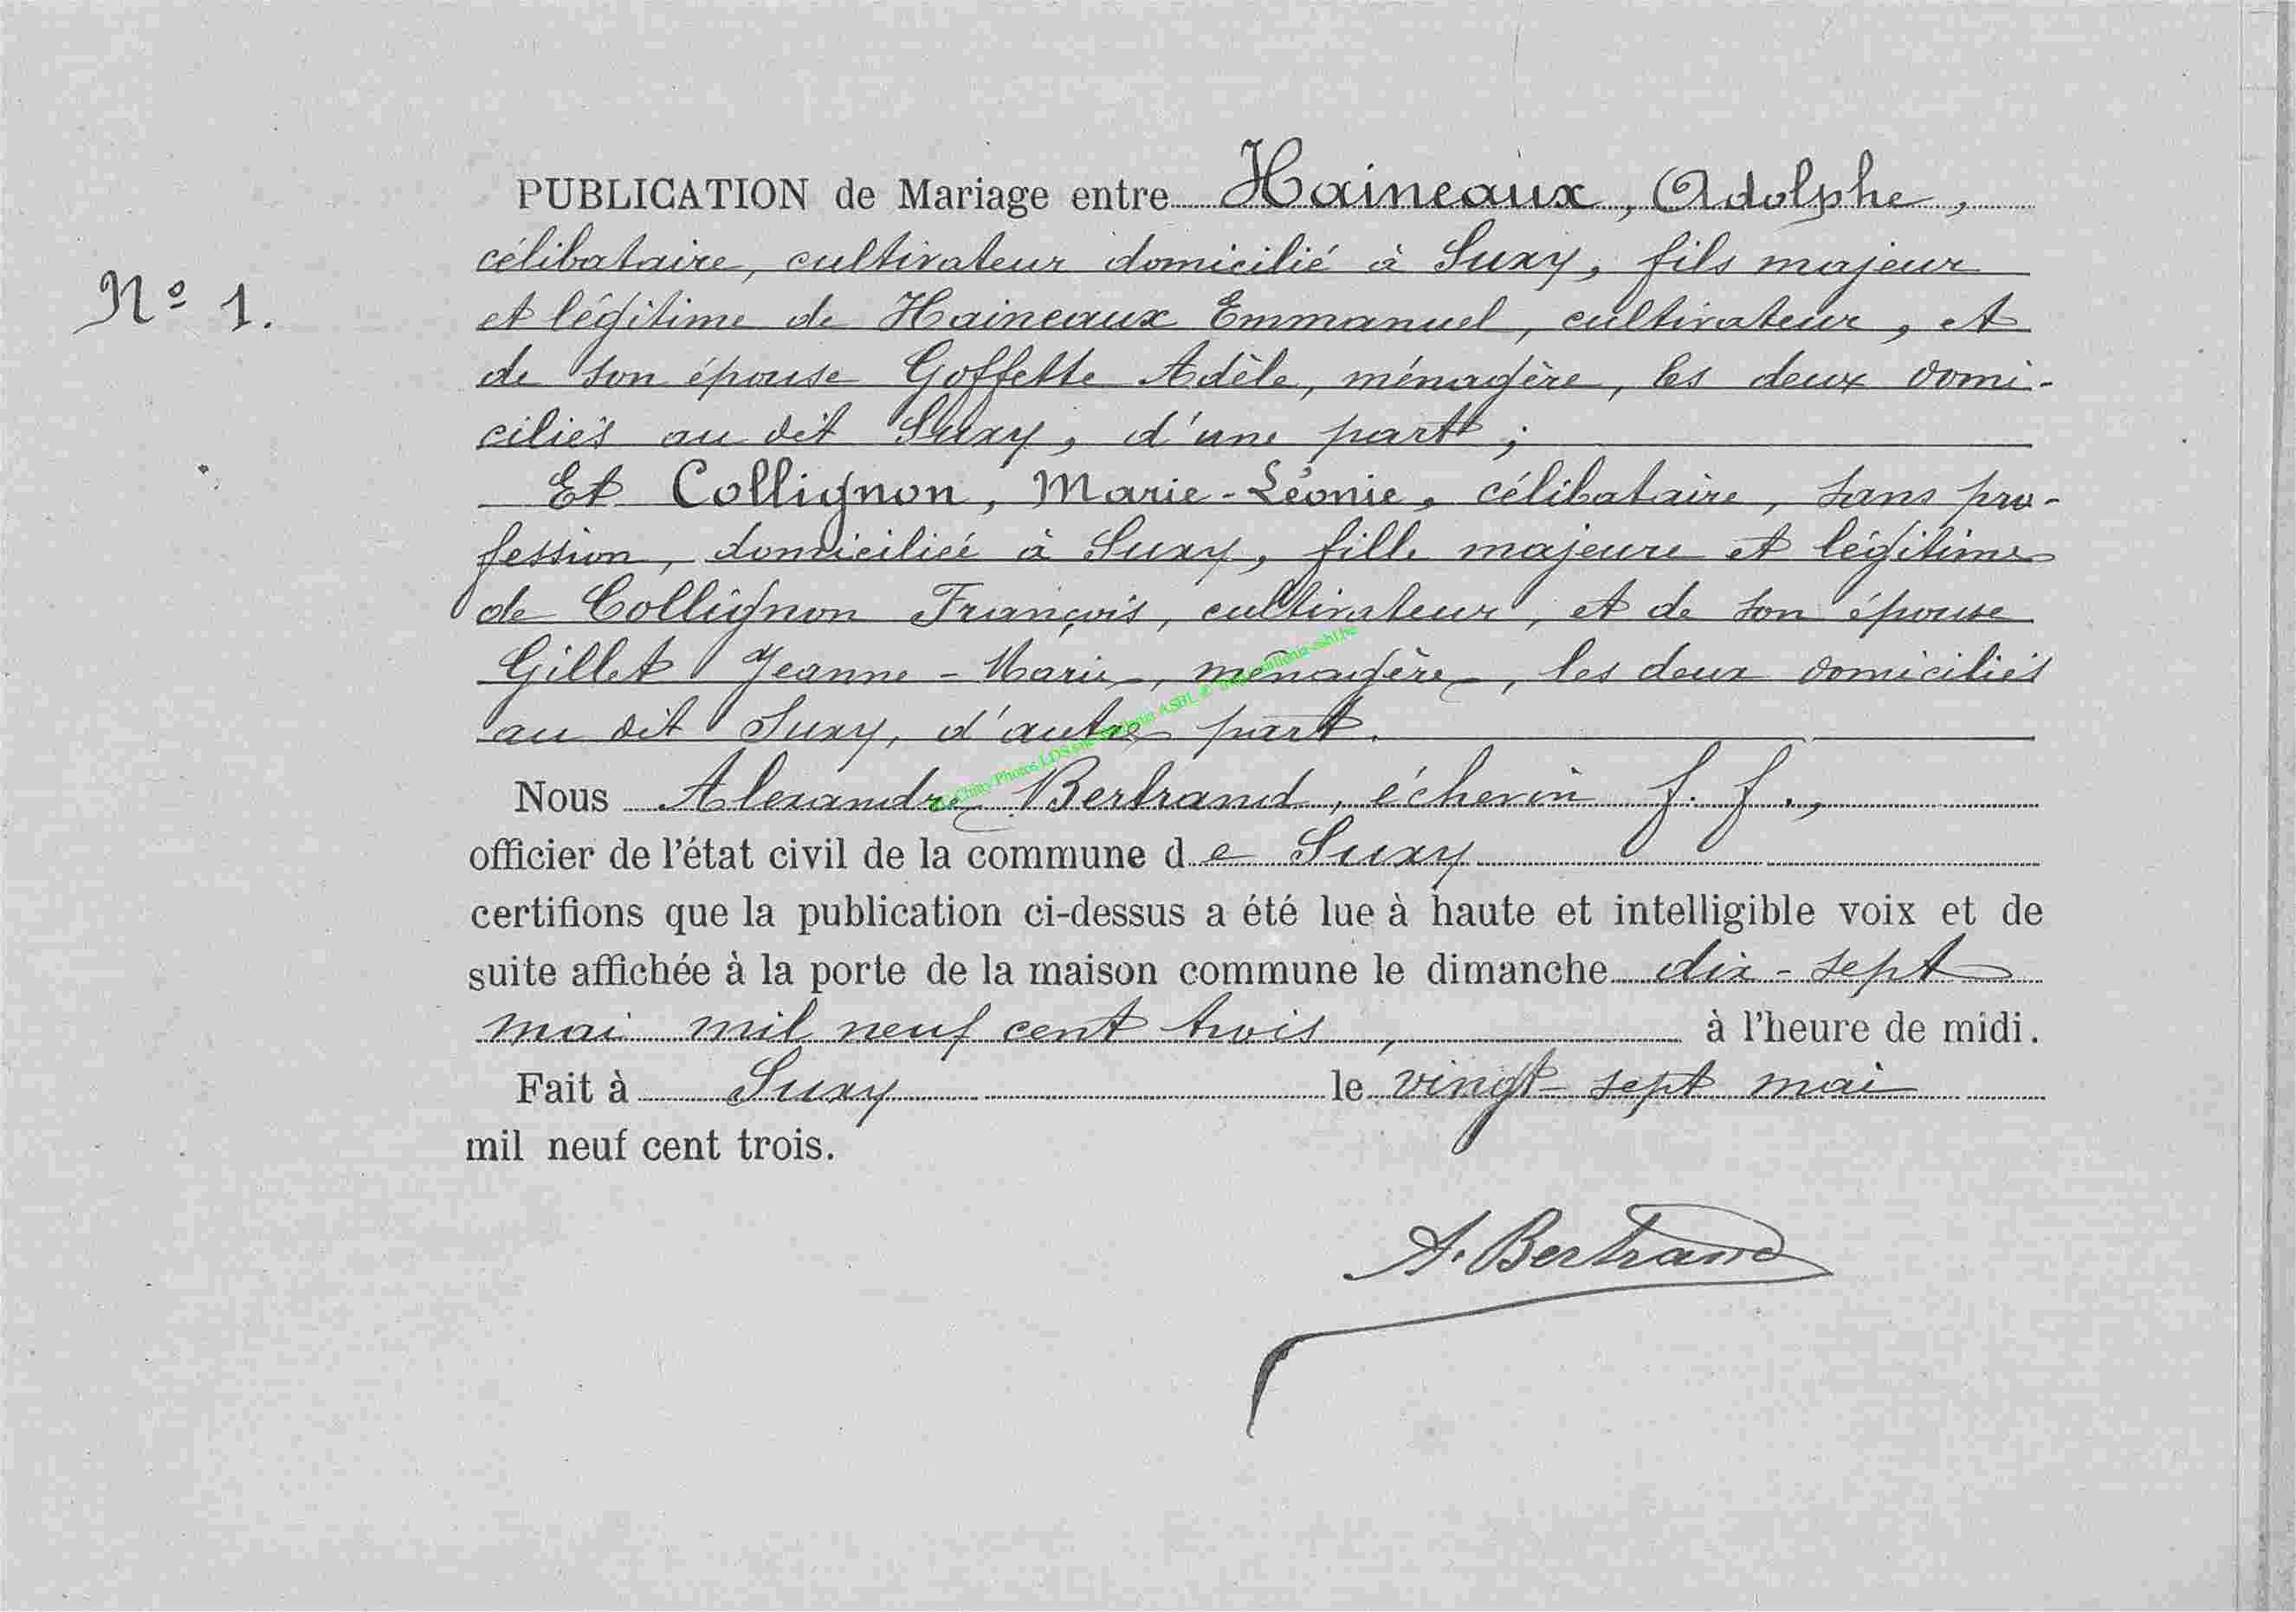 PUBLICATION de Mariage entre Haineaux, Adolphe,
célibataire, cultivateur domicilié à Suxy, fils majeur
Nº 1.
et légitime de Haineaux Emmanuel, cultivateur, et
de son épouse Goffette Adèle, ménagère, les deux domi-
ciliés au dit Suxy, d'une part;
Et Collignon, Marie-Léonie, célibataire, sans pro-
fession, domiciliée à Suxy, fille majeure et légitime
de Collignon François, cultivateur, et de son épouse
Gillet Jeanne-Marie, ménagère, les deux domiciliés
au dit Suxy, d'autre part.
Nous Alexandre Bertrand, échevin f. f.,
officier de l'état civil de la commune de Suxy
certifions que la publication ci-dessus a été lue à haute et intelligible voix et de
suite affichée à la porte de la maison commune le dimanche dix-sept
mai mil neuf cent trois, à l'heure de midi.
Fait à Suxy le vingt-sept mai
mil neuf cent trois.
A. Bertrand